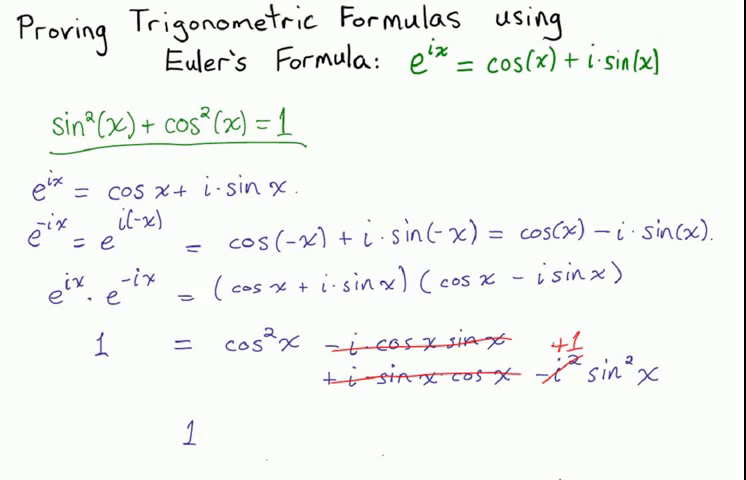 Proving Trigonometric Formulas using
Euler's Formula: e^{ix} = cos(x) + i·sin(x)
sin²(x) + cos²(x) = 1
e^{ix} = cos x + i·sin x.
e^{-ix} = e^{i(-x)} = cos(-x) + i·sin(-x) = cos(x) - i·sin(x).
e^{ix}·e^{-ix} = (cos x + i·sin x)(cos x - i sin x)
1 = cos²x - i·cos x sin x +1
+ i·sin x cos x - i² sin²x
1